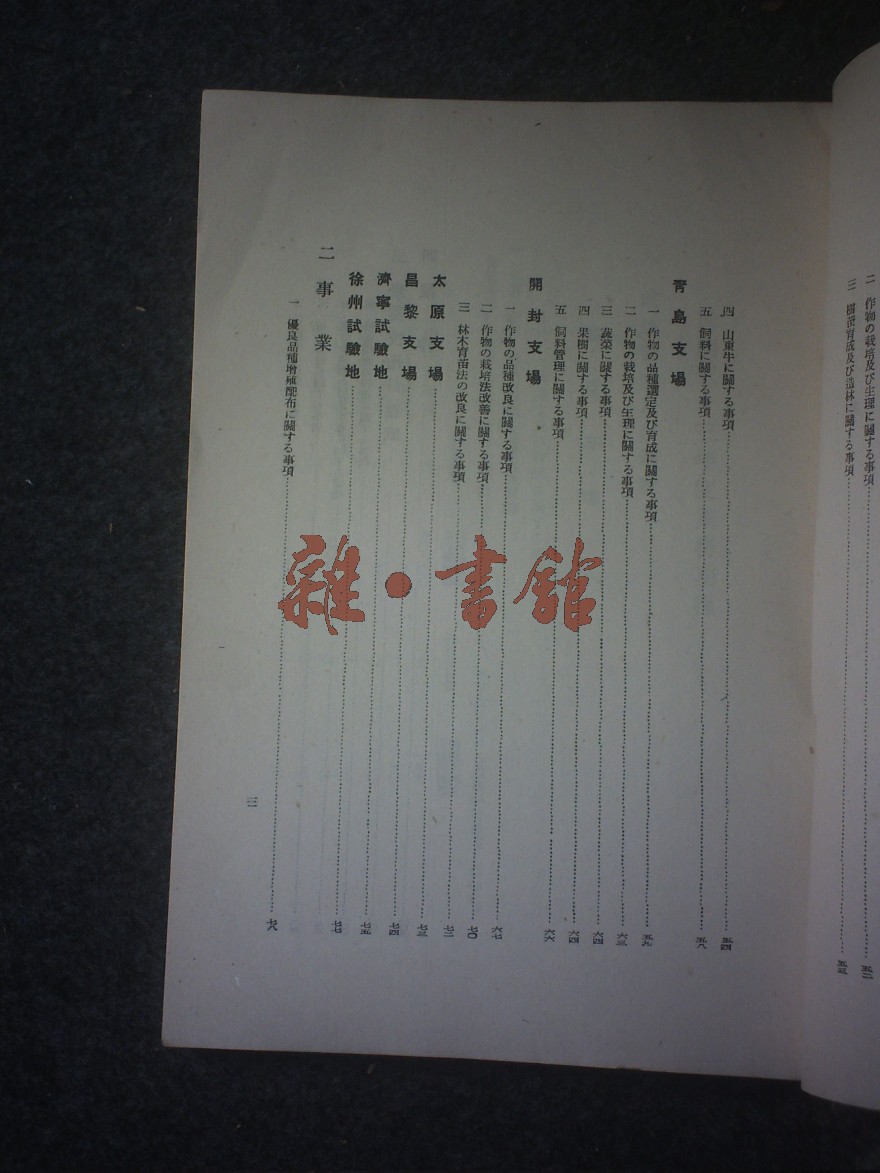 二 作物の栽培及び生理に關する事項……五二
三 樹苗育成及び造林に關する事項……五三
四 山東牛に關する事項……五四
五 飼料に關する事項……五八
青島支場
一 作物の品種選定及び育成に關する事項……五九
二 作物の栽培及び生理に關する事項……六三
三 蔬菜に關する事項……六四
四 果樹に關する事項……六四
五 飼料管理に關する事項……六六
開封支場
一 作物の品種改良に關する事項……六七
二 作物の栽培法改善に關する事項……七〇
三 林木育苗法の改良に關する事項……七二
太原支場……七三
昌黎支場……七四
濟寧試驗地……七五
徐州試驗地……七七
二 事業
一 優良品種增殖配布に關する事項……七八
三
雜·書館